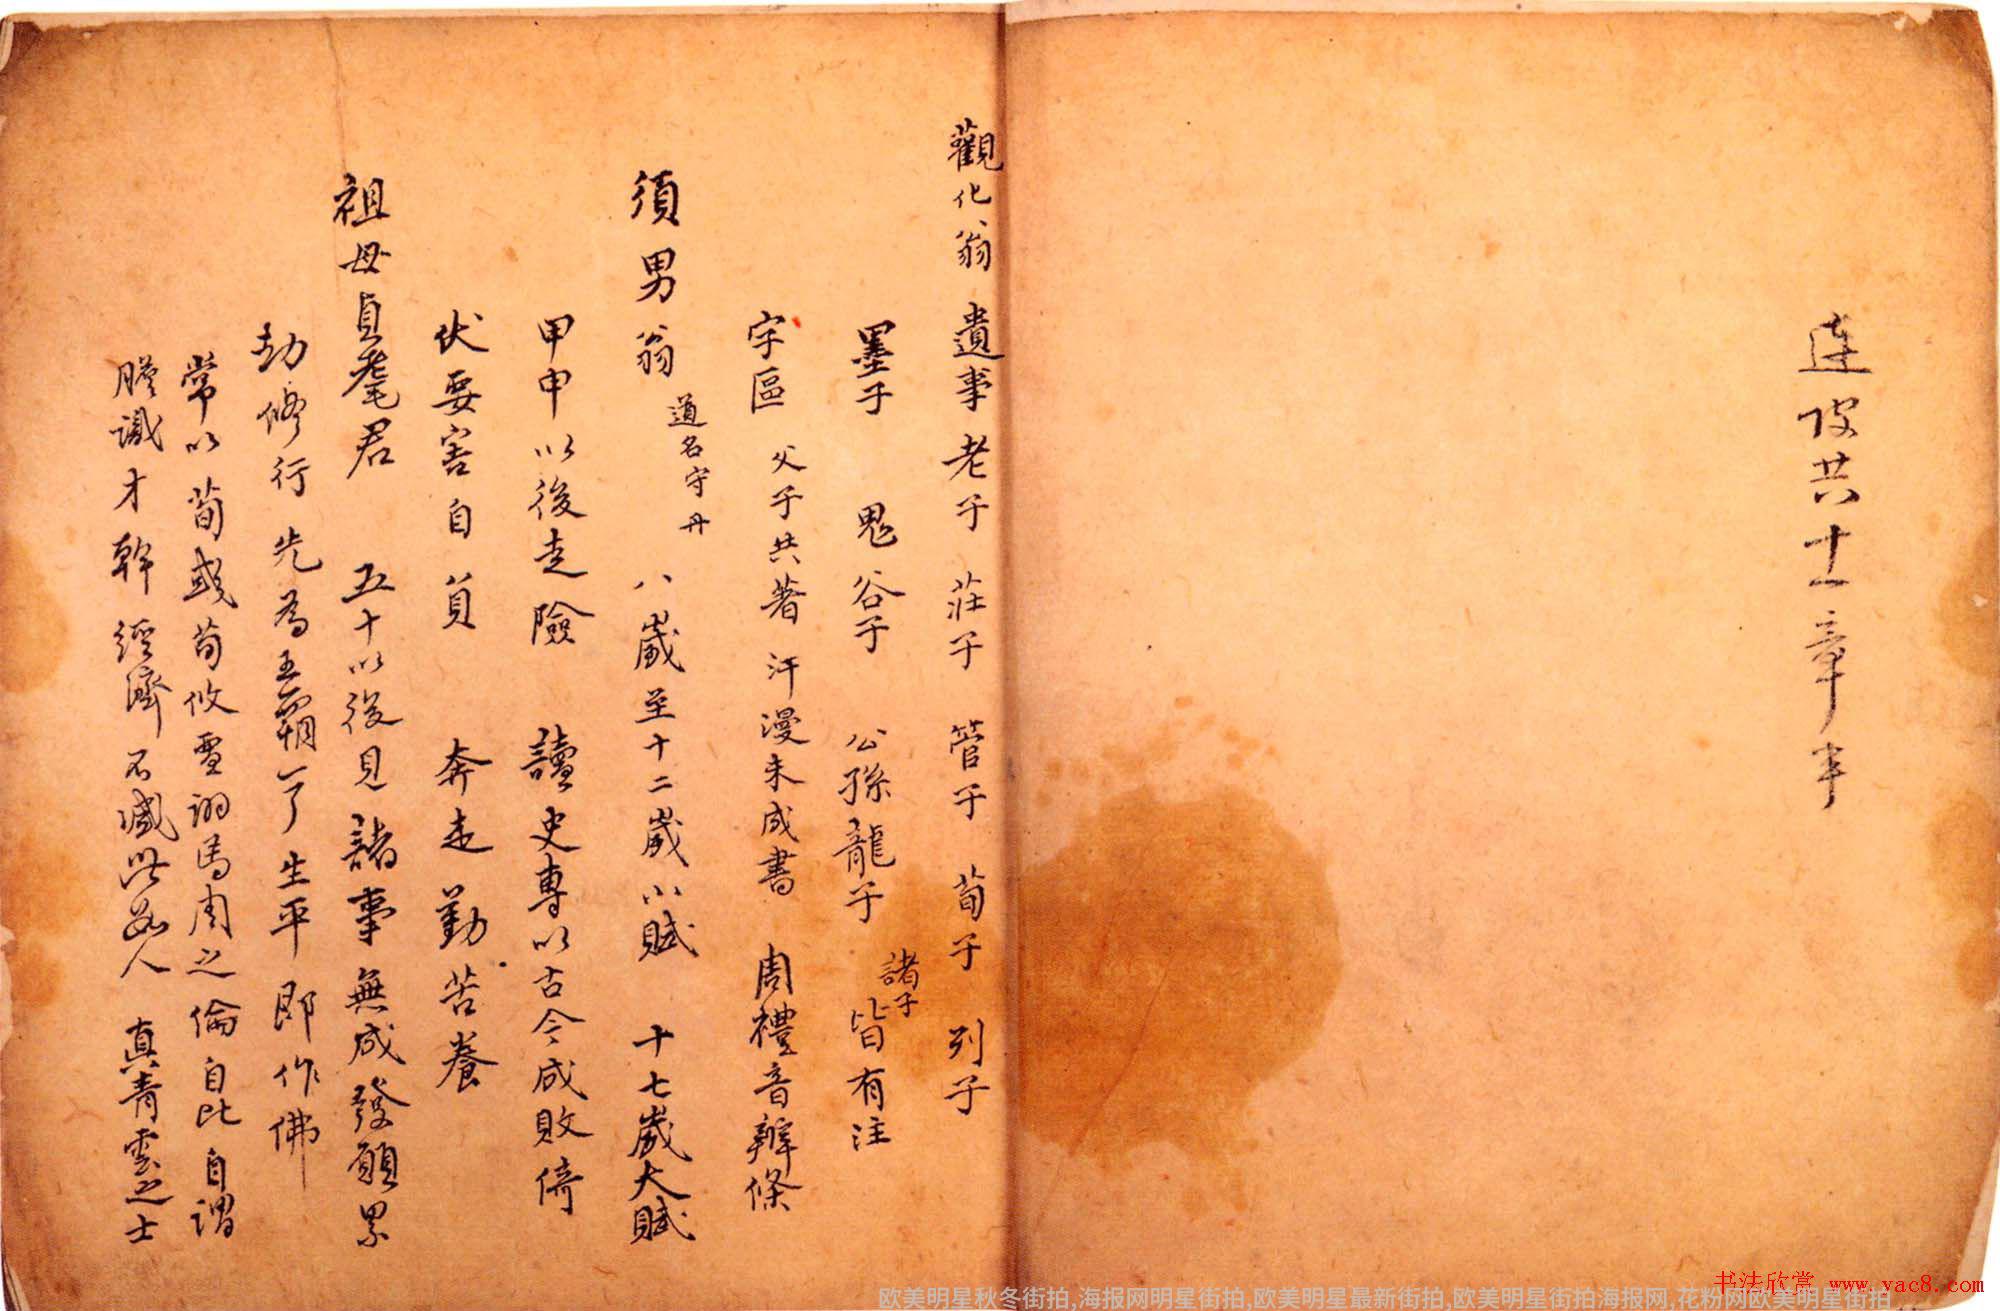 連皮共十一章半
觀化翁 遺事 老子 莊子 管子 荀子 列子
墨子 鬼谷子 公孫龍子 諸子皆有注
字區 父子共著 汗漫未成書 周禮音辨條
須男翁 道名守丹 八歲至十二歲小賦 十七歲大賦
甲申以後走險 讀史專以古今成敗倚
伏要害自負 奔走勤苦養
祖母貞髦君 五十以後見諸事無成發願累
劫修行先為五霸一了生平即作佛
常以荀彧荀攸賈詡馬周之倫自比自謂
膽識才幹經濟不減此數人 真青雲之士
书法欣赏 www.yac8.com
欧美明星秋冬街拍,海报网明星街拍,欧美明星最新街拍,欧美明星街拍海报网,花粉网欧美明星街拍